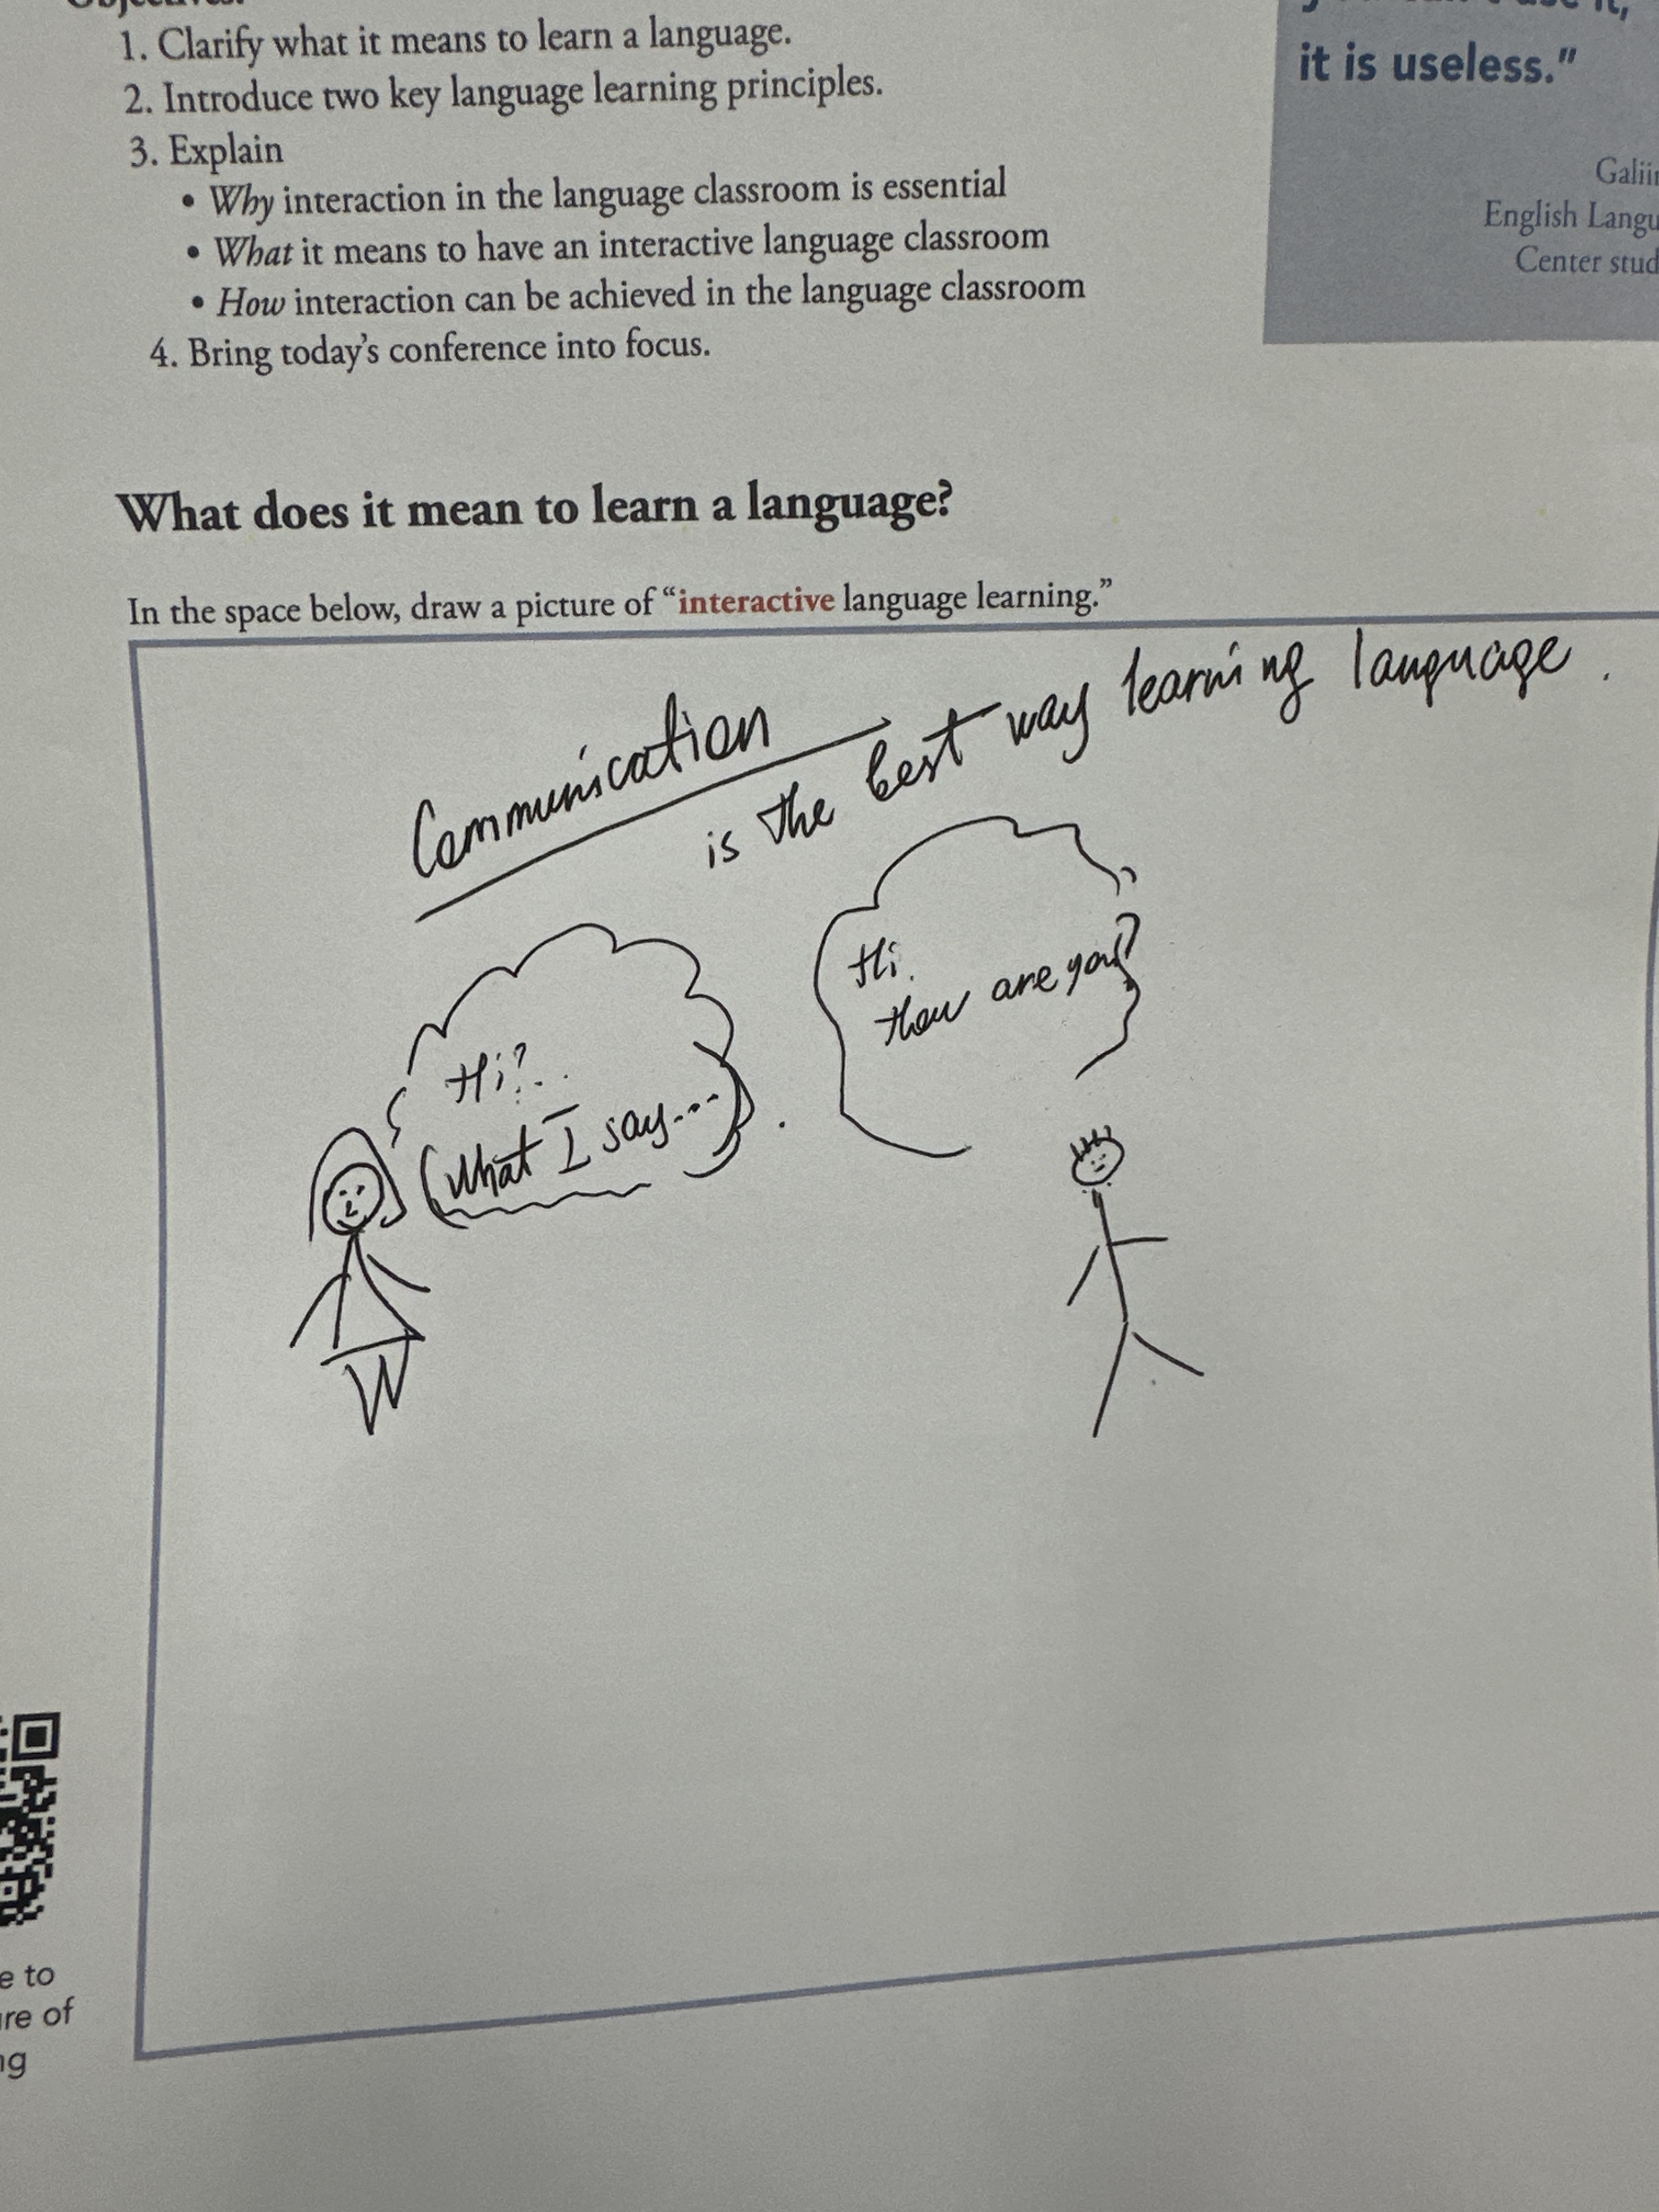 Objectives:
1. Clarify what it means to learn a language.
2. Introduce two key language learning principles.
3. Explain
• Why interaction in the language classroom is essential
• What it means to have an interactive language classroom
• How interaction can be achieved in the language classroom
4. Bring today's conference into focus.
it is useless."
English
Center
What does it mean to learn a language?
In the space below, draw a picture of "interactive language learning."
Communication
is the best way learning language.
Hi.
How are you?
Hi?..
(What I say...)
to
of